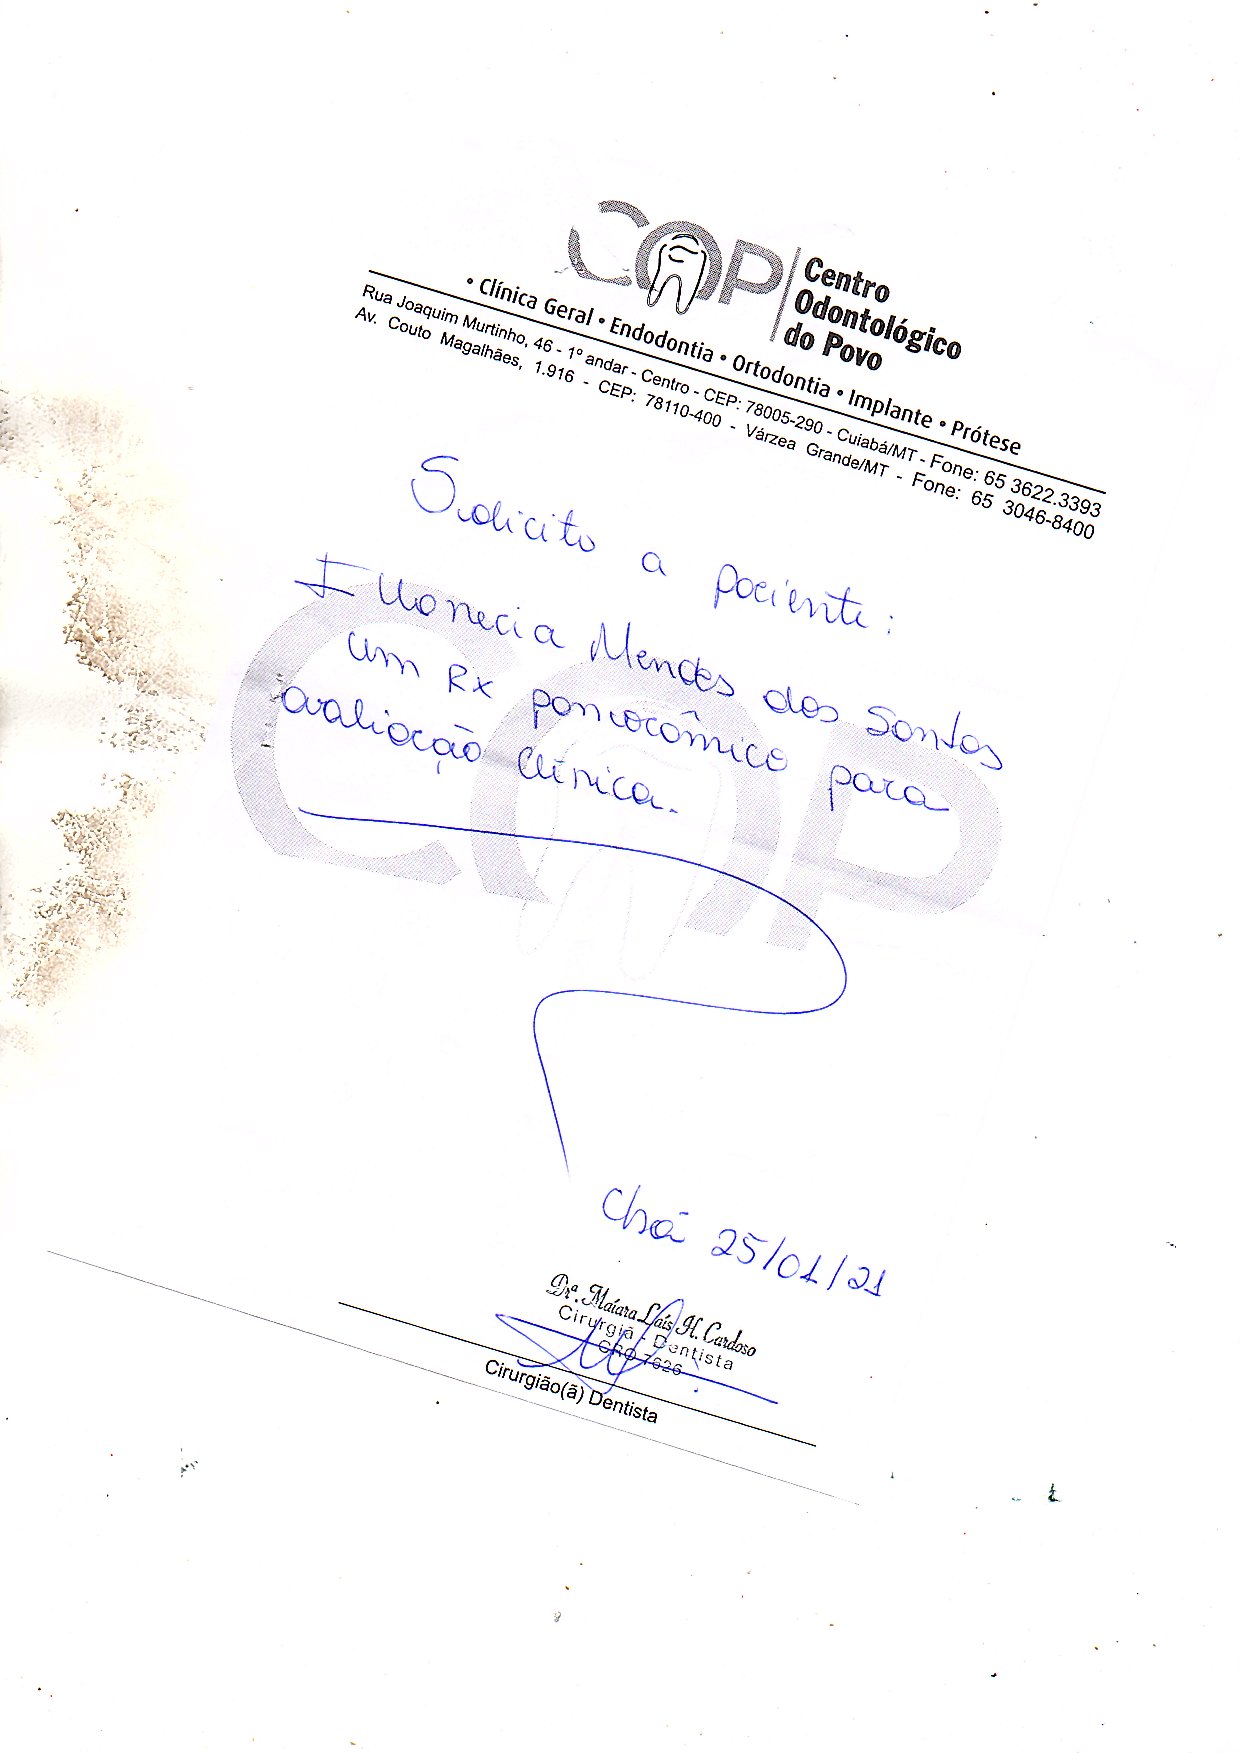 COP
Centro
Odontológico
do Povo
• Clínica Geral • Endodontia • Ortodontia • Implante • Prótese
Rua Joaquim Murtinho, 46 - 1º andar - Centro - CEP: 78005-290 - Cuiabá/MT - Fone: 65 3622.3393
Av. Couto Magalhães, 1.916 - CEP: 78110-400 - Várzea Grande/MT - Fone: 65 3046-8400
COP
Solicito a paciente:
Mendes dos Santos
um RX panorâmico para
avaliação clínica.
Cbá 25/01/21
Drª. Maíara Laís H. Cardoso
Cirurgiã - Dentista
CRO 7626
Cirurgião(ã) Dentista